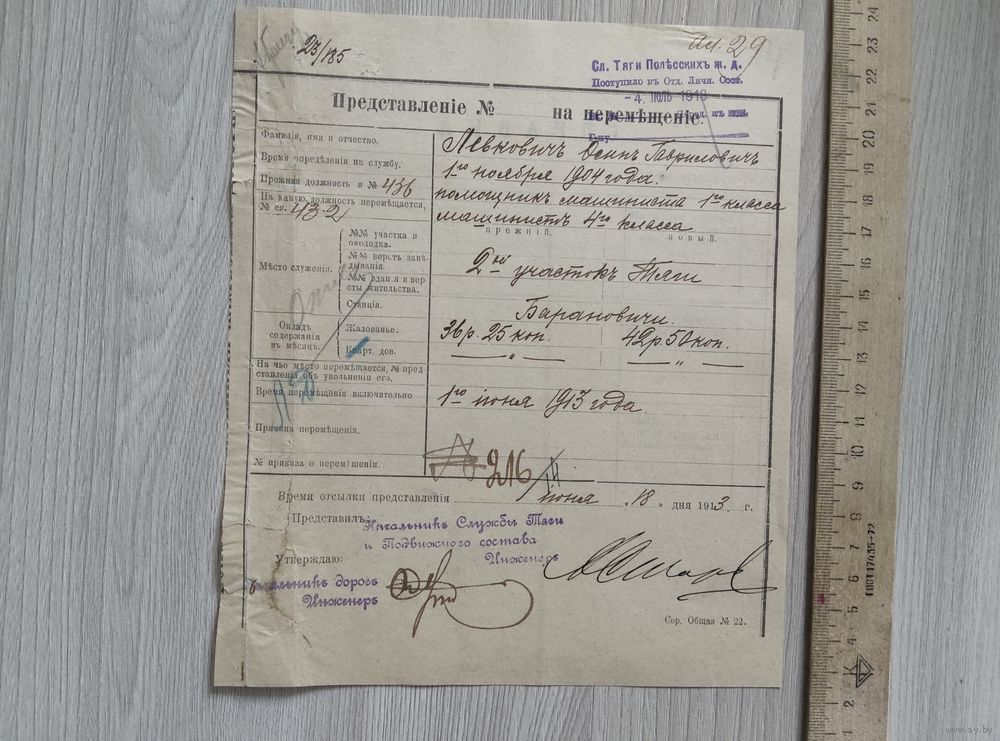 23/185
29
Сл. Тяги Полѣсскихъ ж. д.
Поступило въ Отд. Личн. Сост.
- 4. ІЮЛЬ 1913
Представленіе № на перемѣщеніе.
Фамилія, имя и отчество. Левковичъ Осипъ Гавриловичъ
Время опредѣленія на службу. 1го ноября 1904 года.
Прежняя должность и № 436 помощникъ машиниста 1го класса
На какую должность перемѣщается,
№ см. 432 машинистъ 4го класса
прежній. новый.
Мѣсто служенія.
№№ участка и
околодка. 2ой участокъ Тяги
№№ верстъ завѣ-
дыванія.
№№ зданія и вер
сты жительства.
Станція. Барановичи.
Окладъ
содержанія
въ мѣсяцъ.
Жалованье. 36 р. 25 коп. 42 р. 50 коп.
Кварт. дов. — „ — — „ —
На чье мѣсто перемѣщается, № пред-
ставленія объ увольненіи его.
Время перемѣщенія включительно 1го іюня 1913 года.
Причина перемѣщенія.
№ приказа о перемѣщеніи. 216
Время отсылки представленія іюня 18 дня 1913 г.
Представилъ: Начальникъ Службы Тяги
и Подвижного состава
Инженеръ
Утверждаю:
Начальникъ дорогъ
Инженеръ
Сер. Общая № 22.
24
23
22
21
20
19
18
17
16
15
14
13
12
11
10
9
8
7
6
5
4
3
2
ГОСТ 17435-72
www.ay.by